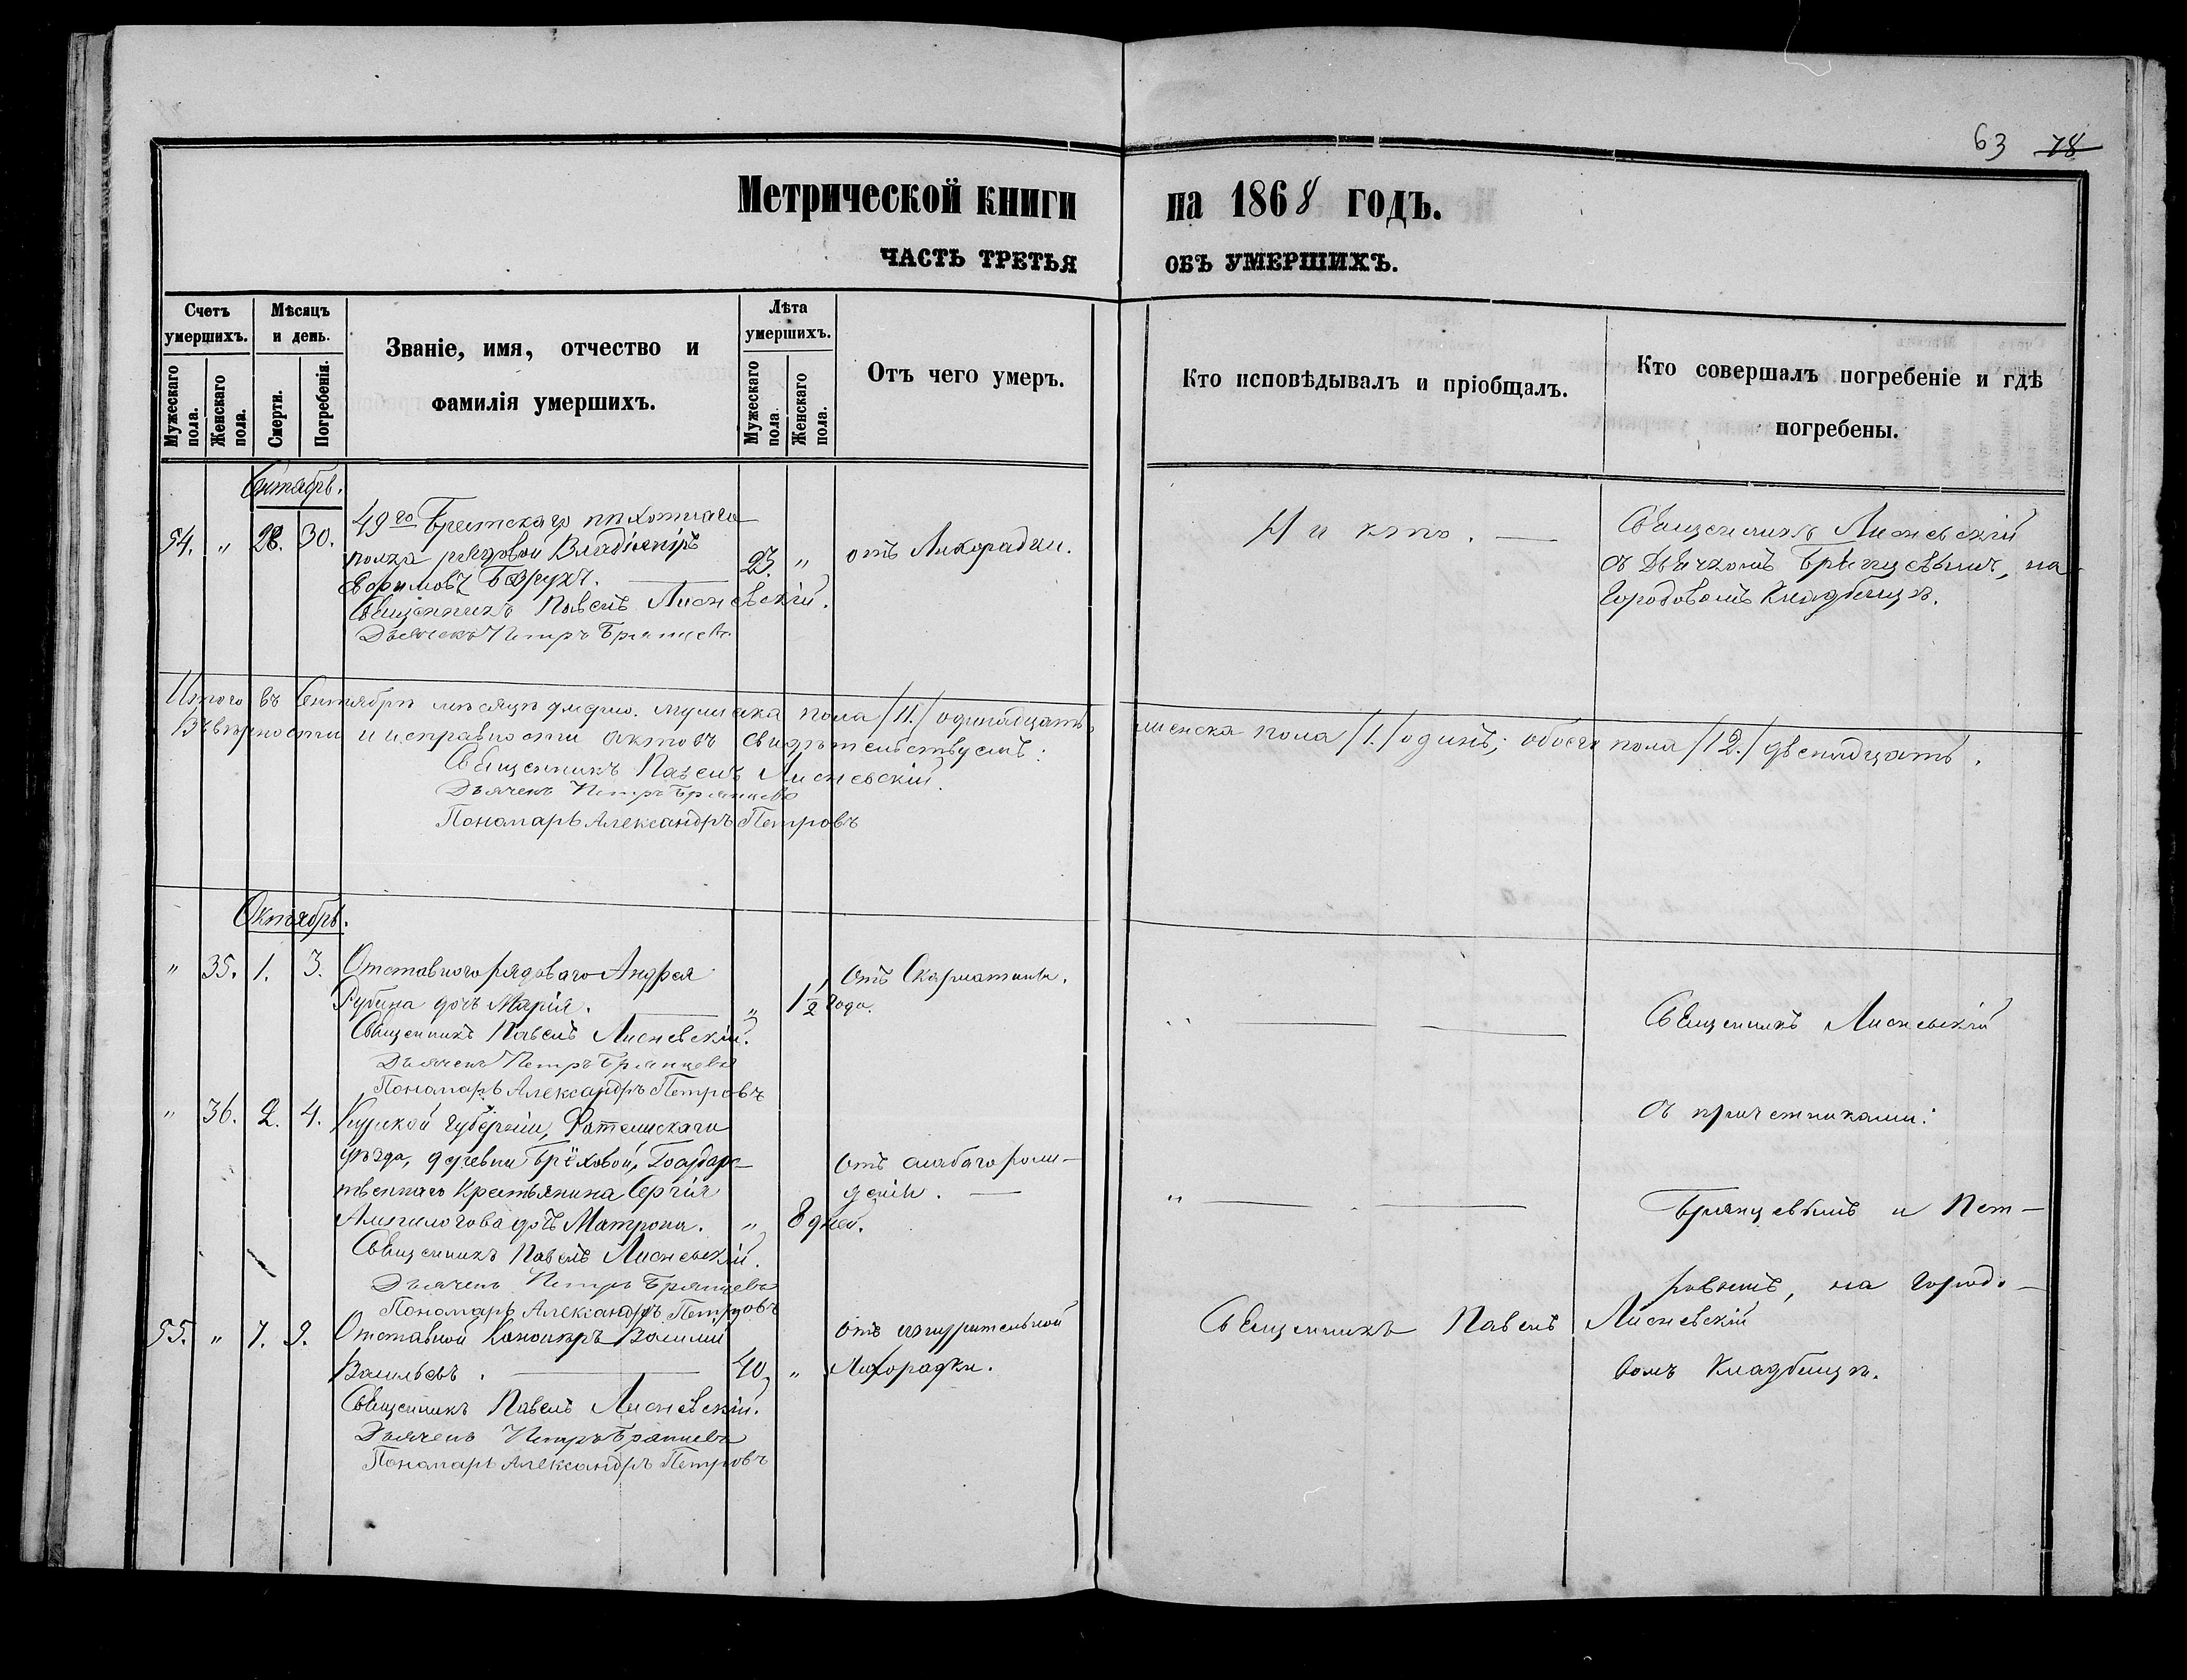 63 78
Метрической книги на 1868 годъ.
ЧАСТЬ ТРЕТЬЯ ОБЪ УМЕРШИХЪ.
Счетъ умершихъ.
Мужескаго пола.
Женскаго пола.
Мѣсяцъ и день.
Смерти.
Погребенія.
Званіе, имя, отчество и
фамилія умершихъ.
Лѣта умершихъ.
Мужескаго пола.
Женскаго пола.
Отъ чего умеръ.
Кто исповѣдывалъ и пріобщалъ.
Кто совершалъ погребеніе и гдѣ
погребены.
Сентябрь.
54. " 28. 30. 49го Брестскаго пѣхотнаго
полка рядовой Владиміръ
Ефимовъ 23. " отъ Лихорадки.
Священникъ Павелъ Лисневскій.
Дьячекъ Петръ Брянцевъ
Никто.
Священникъ Лисневскій
съ Дьячкомъ Брянцевымъ, на
Городовомъ Кладбищѣ.
Итого въ Сентябрѣ мѣсяцѣ умерло. мужеска пола /11./ одинадцать женска пола /1./ одинъ; обоего пола /12./ двенадцать.
Въ вѣрности и исправности актовъ свидѣтельствуемъ:
Священникъ Павелъ Лисневскій.
Дьячекъ Петръ Брянцевъ
Пономарь Александръ Петровъ
Октябрь.
" 35. 1. 3. Отставного рядоваго Андрея
Рубина дочь Марія. " 1 1/2 года. отъ Скарлатины.
Священникъ Павелъ Лисневскій.
Дьячекъ Петръ Брянцевъ
Пономарь Александръ Петровъ
" 36. 2. 4. Курской Губерніи, Фатежскаго
уѣзда, деревни Брёховой, Государс-
твеннаго Крестьянина Сергія
дочь Матрона. " 8 дней. отъ слабаго рож-
денія.
Священникъ Павелъ Лисневскій.
Дьячекъ Петръ Брянцевъ
Пономарь Александръ Петровъ
55. " 7. 9. Отставной Канониръ Василій
Васильевъ. 40. " отъ изнурительной
Лихорадки.
Священникъ Павелъ Лисневскій.
Дьячекъ Петръ Брянцевъ
Пономарь Александръ Петровъ
Священникъ Павелъ Лисневскій
Священникъ Лисневскій
съ причетниками:
Брянцевымъ и Пет-
ровымъ, на Городо-
вомъ Кладбищѣ.